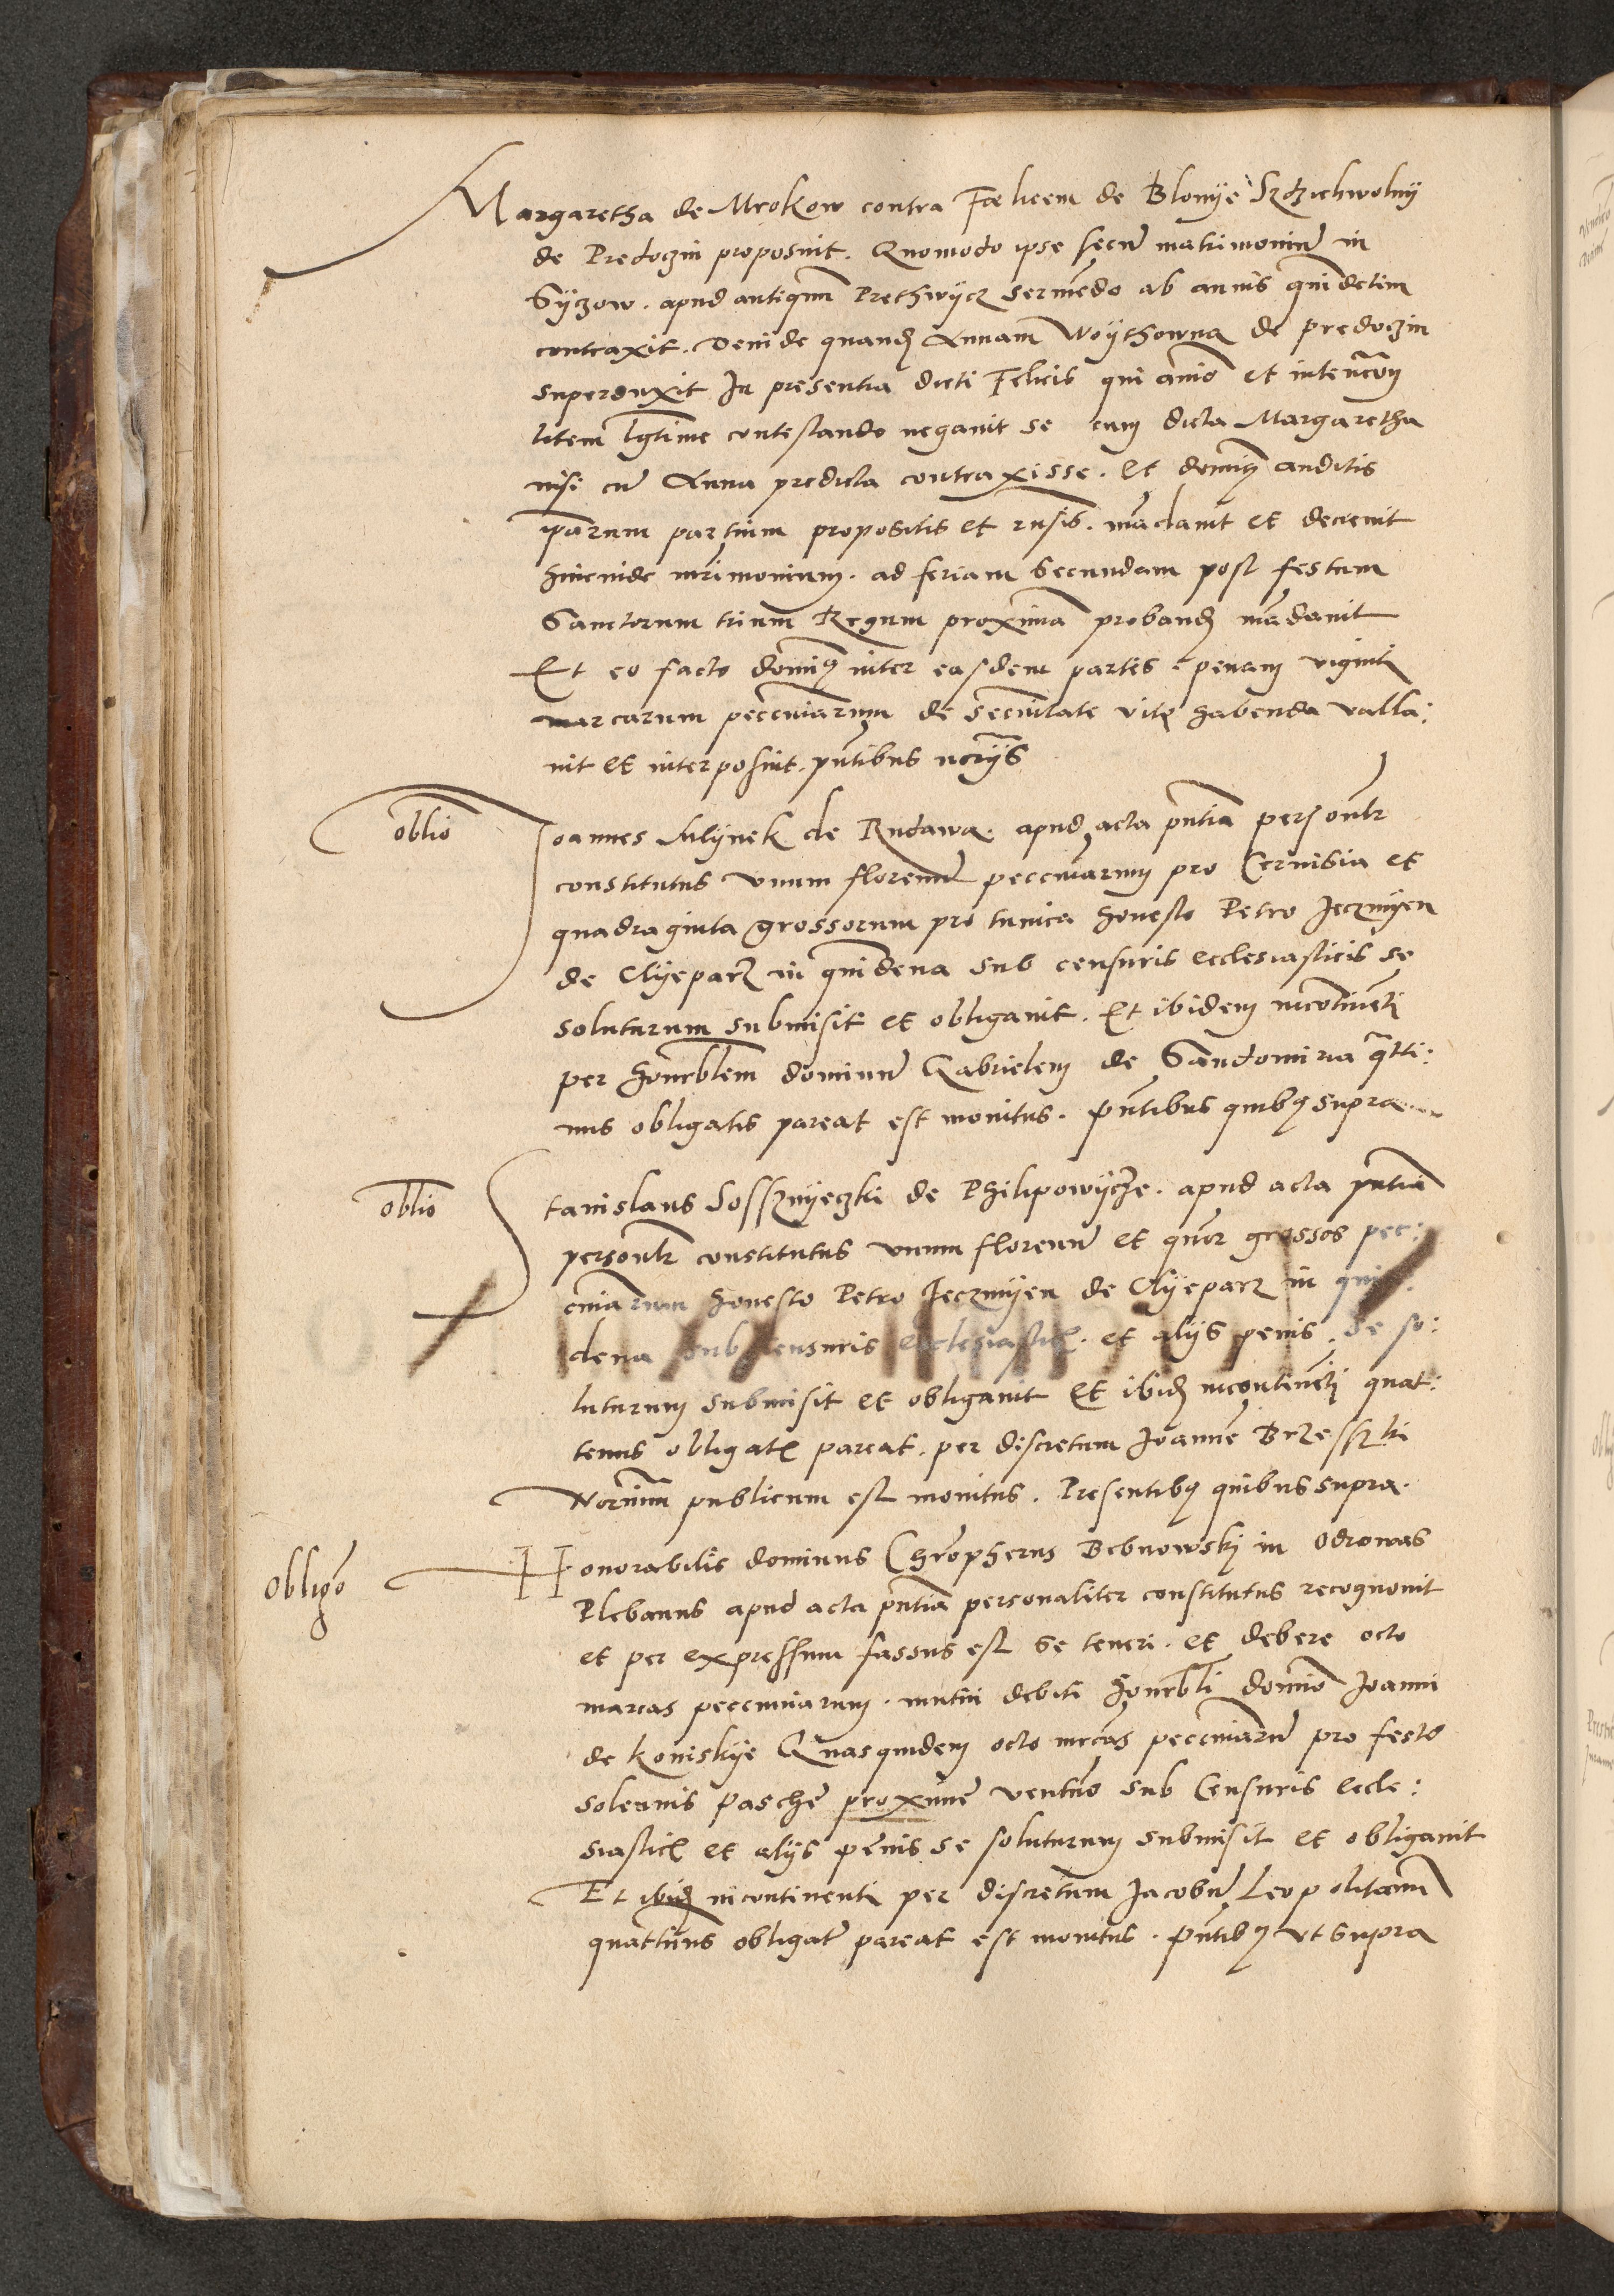 Margaretha de Mrokow contra Foelicem de Blonÿe Srzichwolnÿ
de Predoczin proposuit. Quomodo ipse secū matrimoniū in
Sÿzow. apud antiquum Prethwÿcz sermēdo ab annis quīdecim
contraxit. Deinde quandā Annam Woÿthowna de predoczin
superduxit In presentia dicti Felicis qui aīo et intencōnē
litem lgtime contestando negavit se cum dicta Margaretha
nisi cū Anna predicta contraxisse. Et dominꝰ auditis
ip̄arum partium propositis et rn̄sis. et decrevit
hincinde mr̄imonium. ad feriam secundam post festum
Sanctorum trium Regum proximā proband mādavit
Et eo facto dominꝰ inter easdem partes penam viginti
marcarum peccuniarum de securitate vite habenda valla:
vit et interposuit. pn̄tibus
obliō
Joannes Mlÿnek de Rudawa. apud acta pn̄tia personlr
constitutus vnum florenū peccuniarum pro Cervisia et
quadraginta grossorum pro tunica honesto Petro Jeczmÿen
de Clÿeparz in quīdena sub censuris ecclesiasticis se
soluturum submisit et obligavit. Et ibidem incontinēti
per honorablem dominū Gabrielem de Sandomiria qāti:
nus obligatis pareat est monitus. pn̄tibus quibꝰ supra
obliō
Stanislaus Sosssnÿeczki de Philipowÿcze. apud acta pn̄tia
personlr constitutus vnum florenū et qūor grossos pec:
cuniarum honesto Petro Jeczmÿen de Clÿeparz in quin:
dena sub censuris ecclesiastic. et alÿs penis. se so:
luturum submisit et obligavit Et ibid incontinēti quat:
tenus obligat pareat. per discretum Joannē Brzesszki
Notarium publicum est monitus. Presentibꝰ quibus supra.
Obligō
Honorabilis dominus Chrōpherus Bebnowskj in Odrowas
Plebanus apud acta pn̄tia personaliter constitutus recognovit
et per expressum fassus est se teneri. et debere octo
marcas peccuniarum. mutui debiti honorabli domīo Joanni
de Koniskÿe Quasquidem octo mrcas peccuniarū pro festo
solennis Pasche proxime ventūo sub Censuris eccle:
siastic et alÿs penis se soluturum submisit et obligavit
Et ibid incontinenti per discretum Jacobū Leopolitanum
quattenus obligat pareat est monitus. pn̄tibꝰ vt supra